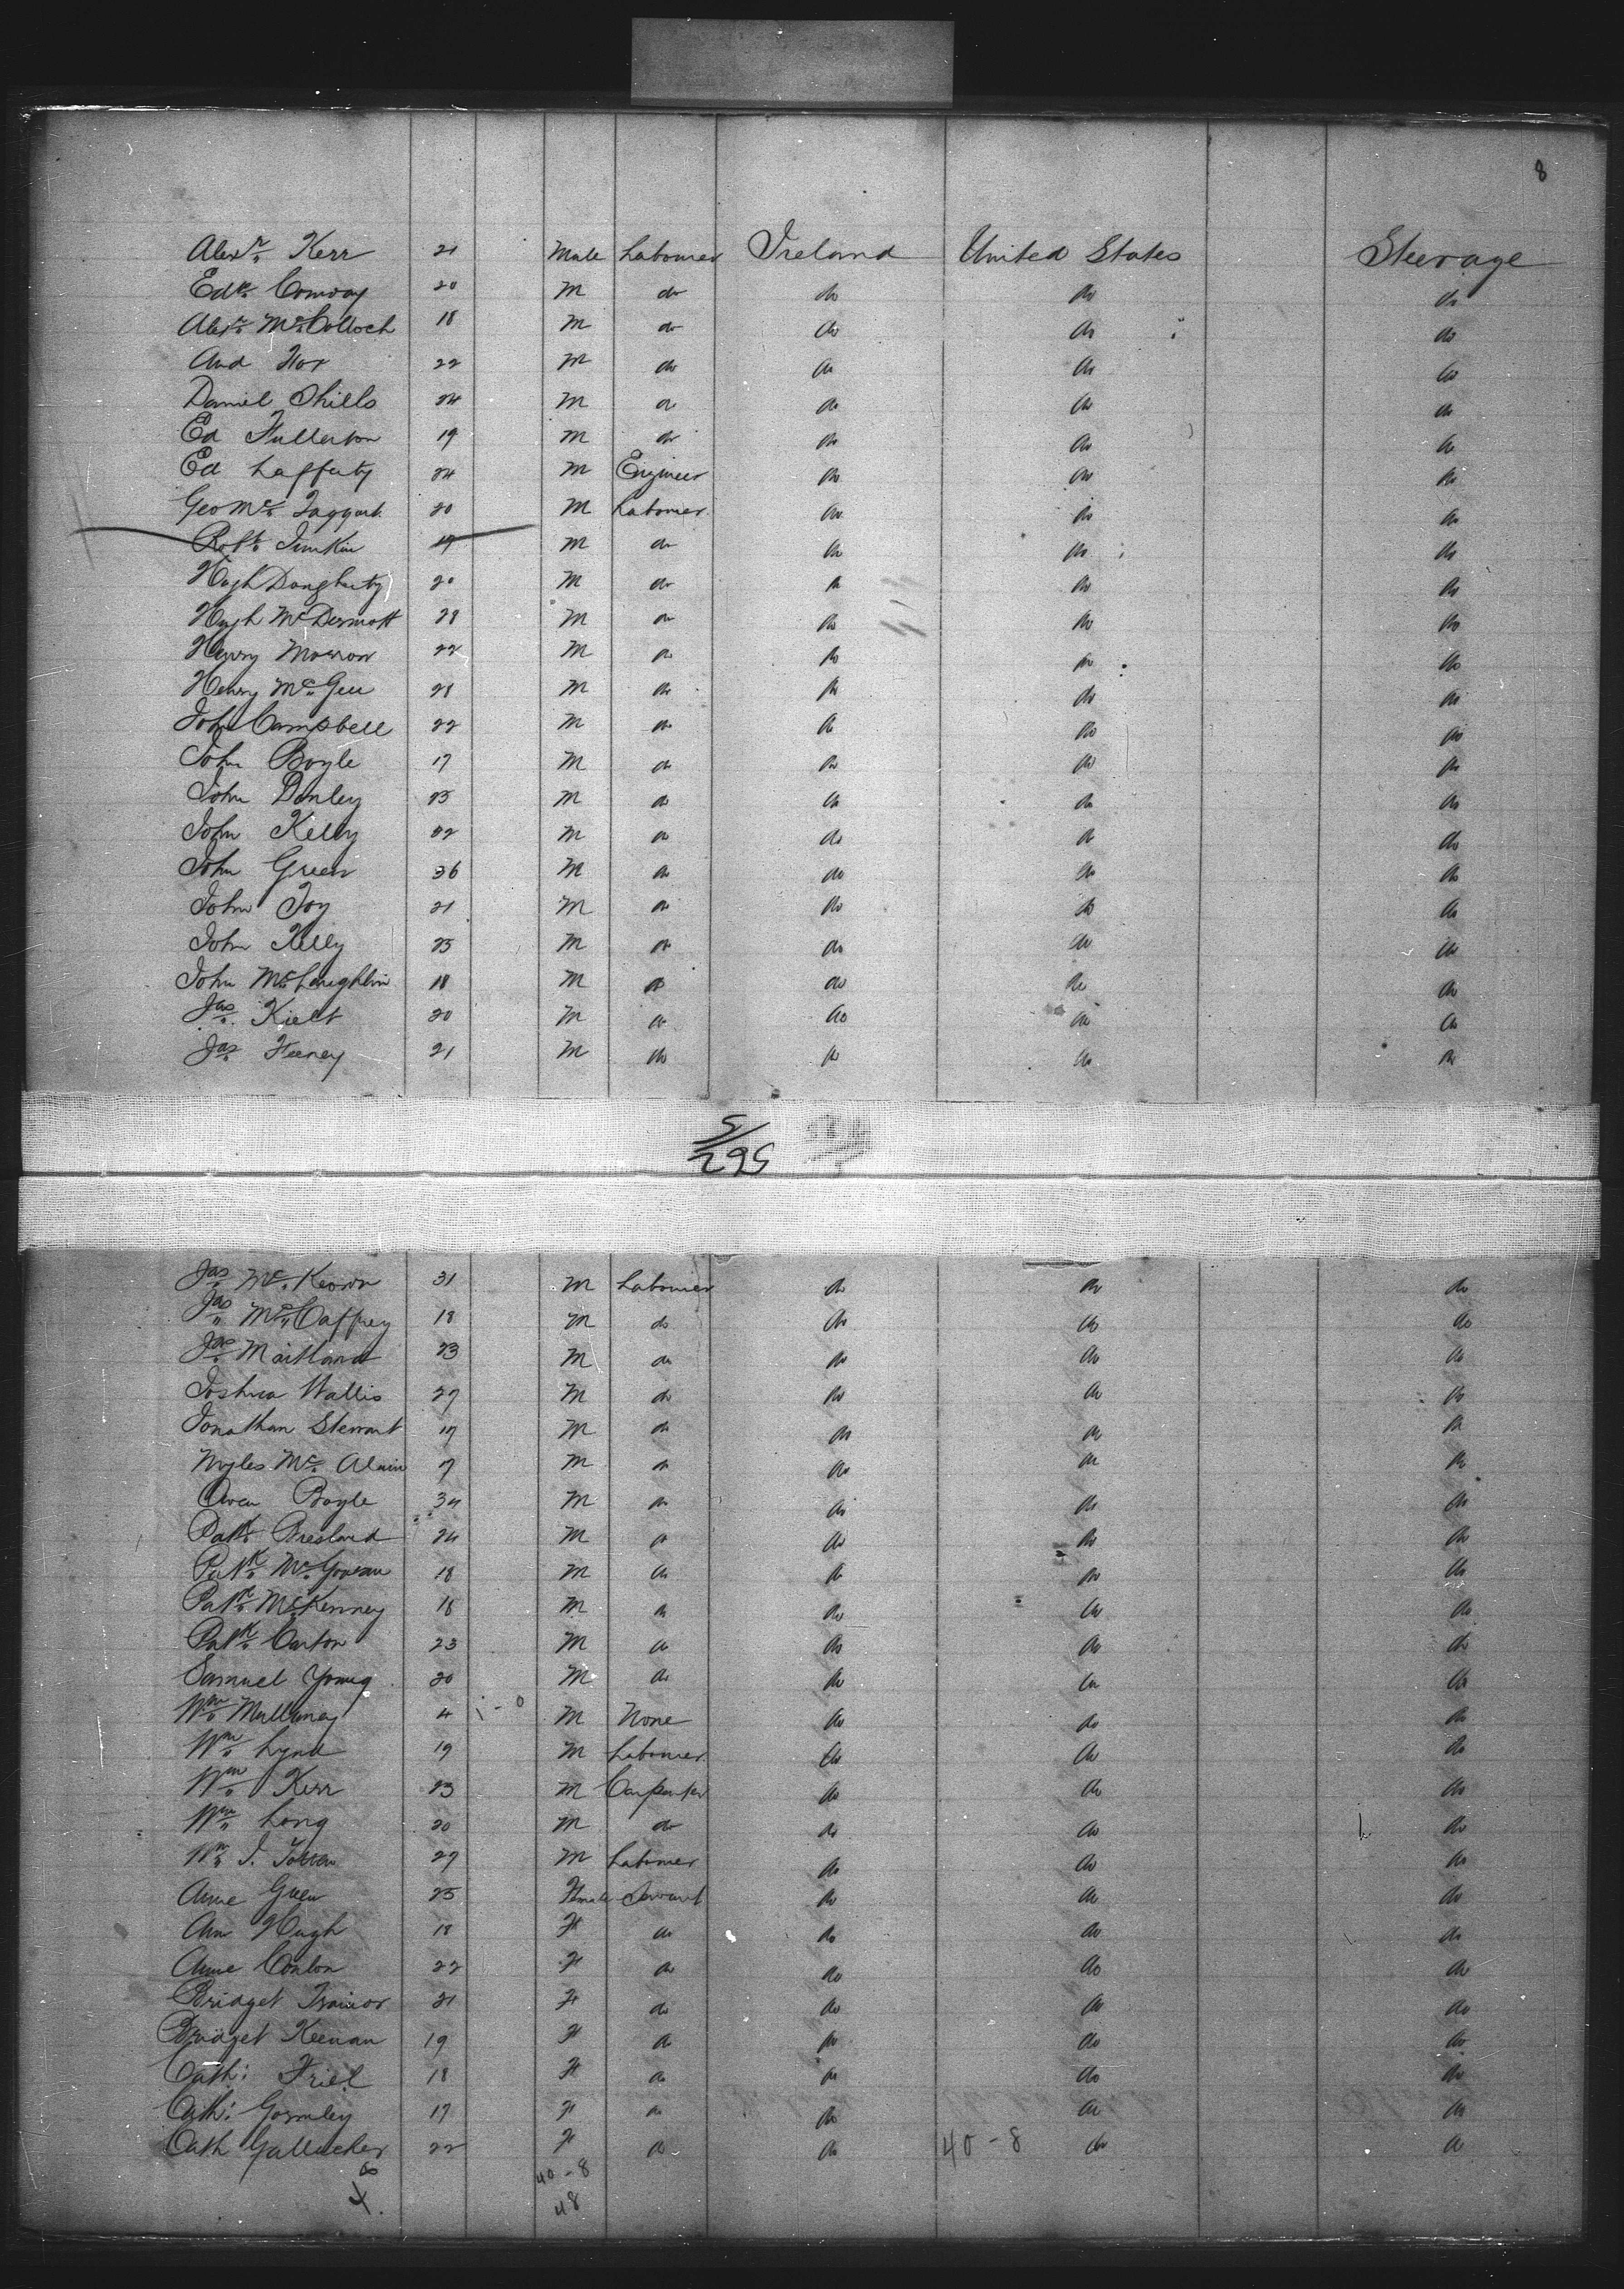 8
Alexr. Kerr 21 Male Labourer Ireland United States Steerage
Edw. Conway 20 M do do do do
Alexr. McColloch 18 M do do do do
And Fox 22 M do do do do
Daniel Shills 24 M do do do do
Ed Fullerton 19 M do do do do
Ed Lafferty 24 M Engineer do do do
Geo Mc. Taggart 20 M Labourer do do do
Robt. Junkin 19 M do do do do
Hugh Dougherty 20 M do do do do
Hugh McDermott 28 M do do do do
Henry Morrow 22 M do do do do
Henry Mc. Gee 28 M do do do do
John Campbell 22 M do do do do
John Boyle 17 M do do do do
John Donley 25 M do do do do
John Kelly 22 M do do do do
John Green 36 M do do do do
John Joy 21 M do do do do
John Kelly 25 M do do do do
John McLaughlin 18 M do do do do
Jas. Kielt 20 M do do do do
Jas. Feeney 21 M do do do do
5/295
Jas. Mc. Keown 31 M Labourer do do do
Jas. Mc. Caffrey 18 M do do do do
Jas. Maitland 23 M do do do do
Joshua Wallis 27 M do do do do
Jonathan Stewart 17 M do do do do
Myles Mc. 7 M do do do do
Owen Boyle 34 M do do do do
Patk. Bresland 24 M do do do do
Patk. Mc. Govern 18 M do do do do
Patk. McKenney 18 M do do do do
Patk. Carton 23 M do do do do
Samuel Young 20 M do do do do
Wm. Mullaney 4 M None do do do
Wm. Lynd 19 M Labourer do do do
Wm. Kerr 23 M Carpenter do do do
Wm. Long 20 M do do do do
Wm. J. 27 M Labourer do do do
Anne Green 25 Female Servant do do do
Ann Hugh 18 F do do do do
Anne Conlon 22 F do do do do
Bridget Trainor 21 F do do do do
Bridget Keenan 19 F do do do do
Cath: Friel 18 F do do do do
Cath: Gormley 17 F do do do do
Cath Gallacher 22 F do do 40-8 do do
40-8
48